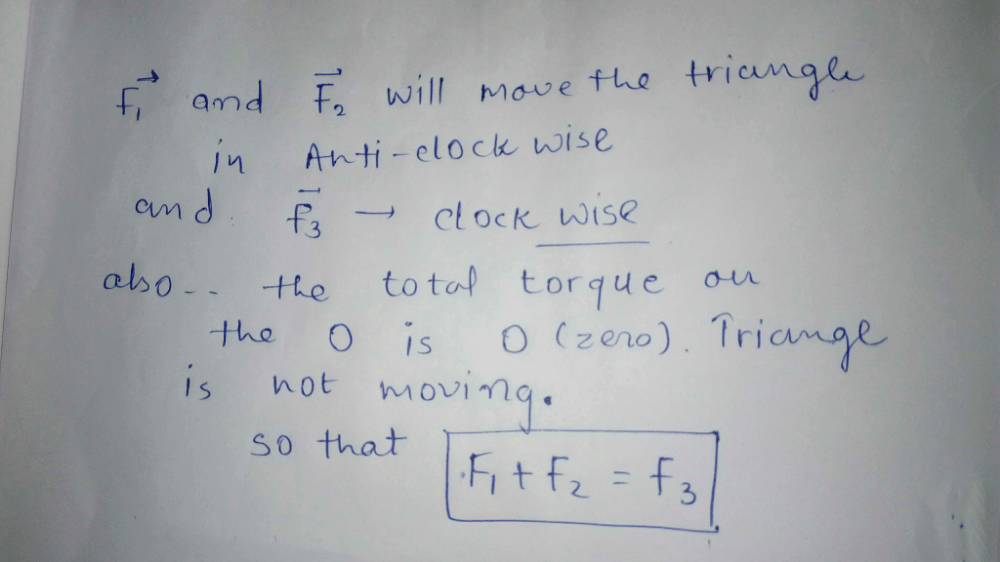 F₁ and F₂ will move the triangle
in Anti-clock wise
and F₃ → clock wise
also -- the total torque on
the O is O (zero). Triange
is not moving.
so that F₁ + F₂ = F₃